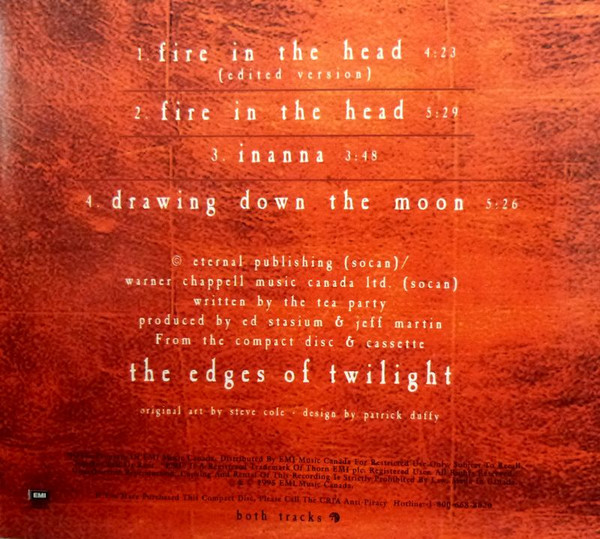 1. fire in the head 4:23
(edited version)
2. fire in the head 5:29
3. inanna 3:48
4. drawing down the moon 5:26
© eternal publishing (socan)/
warner chappell music canada ltd. (socan)
written by the tea party
produced by ed stasium & jeff martin
From the compact disc & cassette
the edges of twilight
original art by steve cole · design by patrick duffy
Of EMI Music Canada. Distributed By EMI Music Canada For Restricted Use Only. Subject To Recall
Registered Trademark Of Thorn EMI plc. Registered User All Rights Reserved.
Of This Recording Is Strictly Prohibited By Law. Made In Canada.
1995 EMI Music Canada.
EMI
Have Purchased This Compact Disc, Please Call The CRIA Anti-Piracy Hotline
both tracks